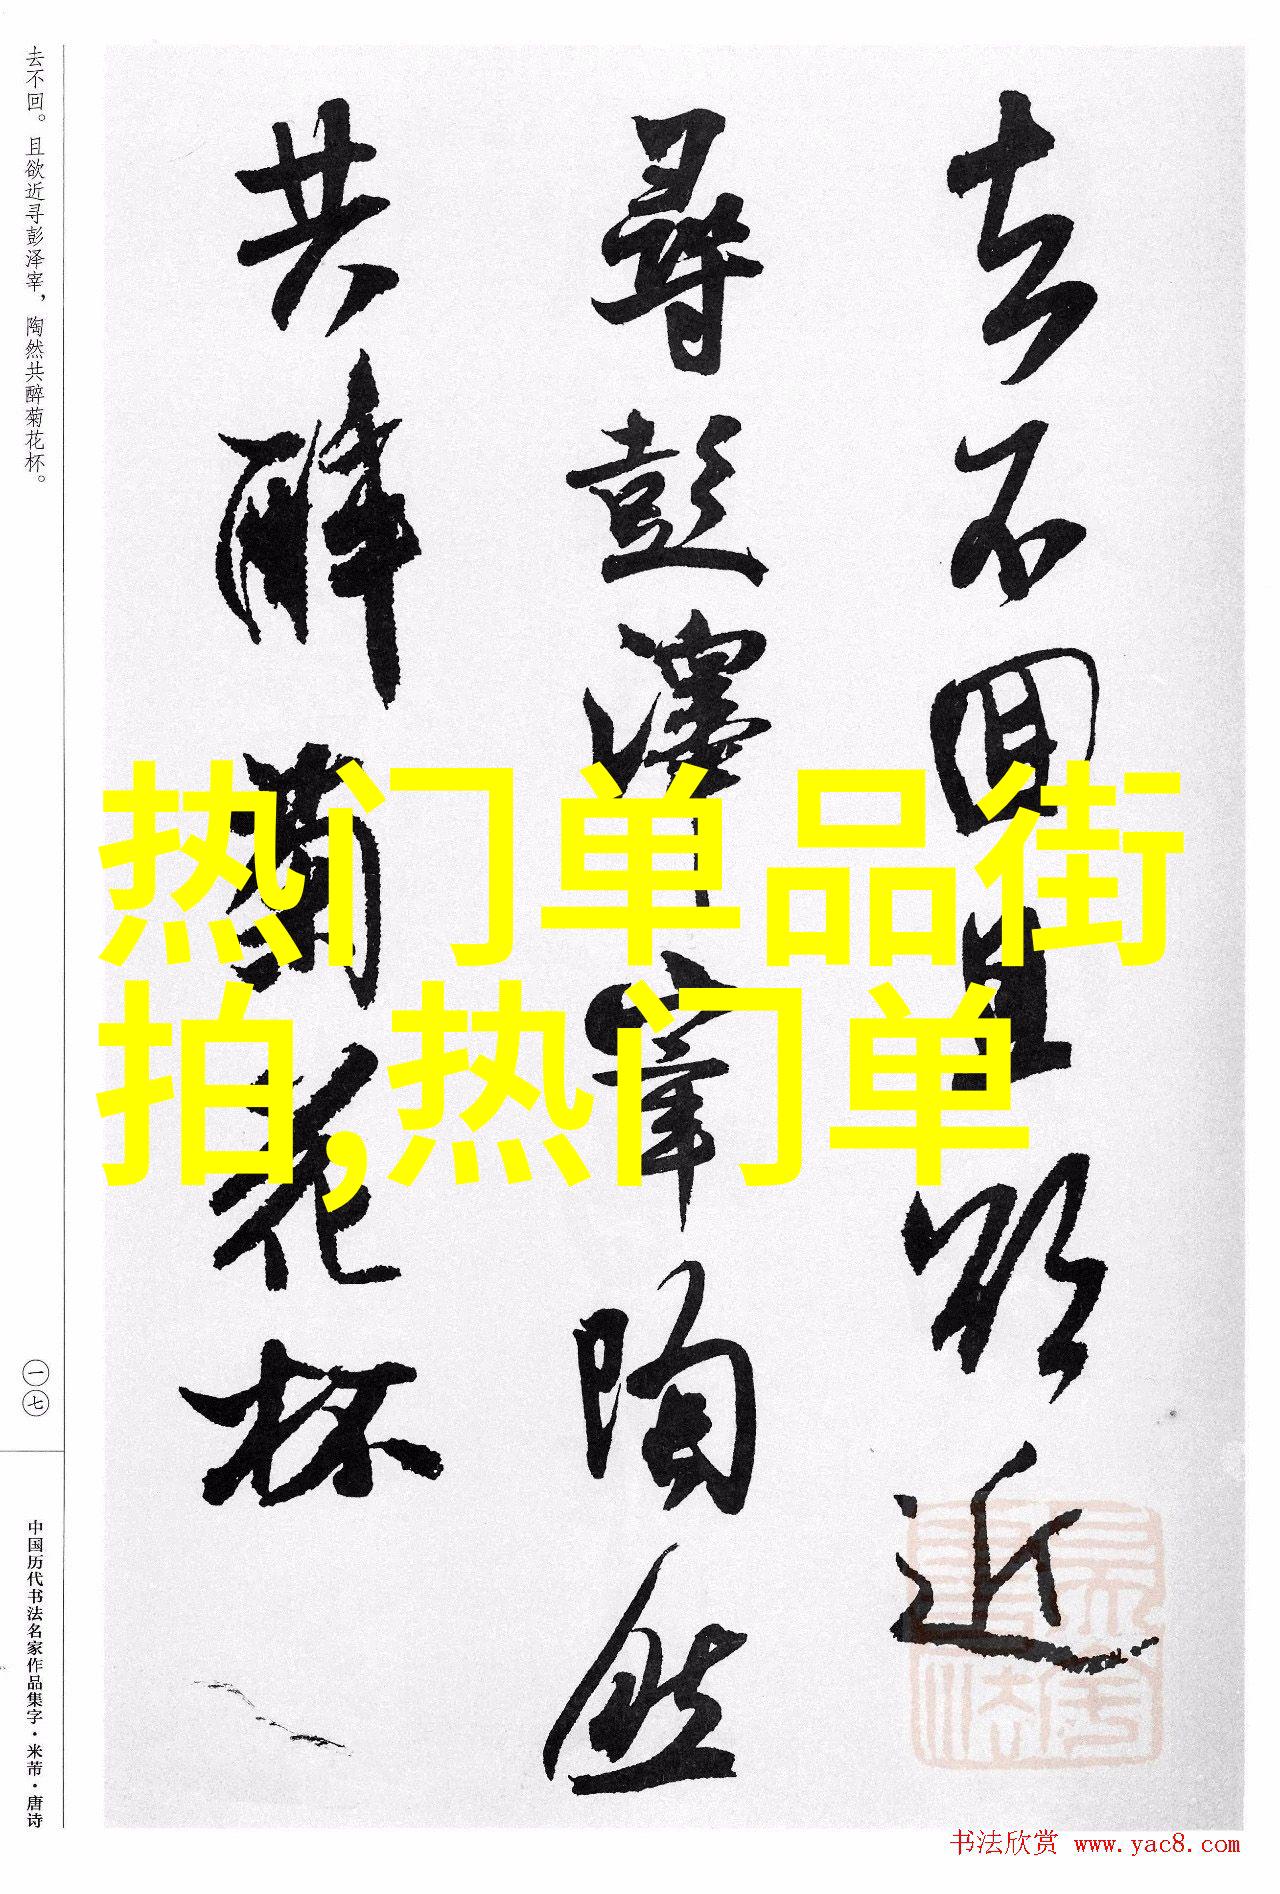 去不回且欲近
尋彭澤宰陶然
共醉菊花杯
热门单品街
拍,热门单
去不回。且欲近寻彭泽宰，陶然共醉菊花杯。
一七
中国历代书法名家作品集字·米芾·唐诗
书法欣赏 www.yac8.com